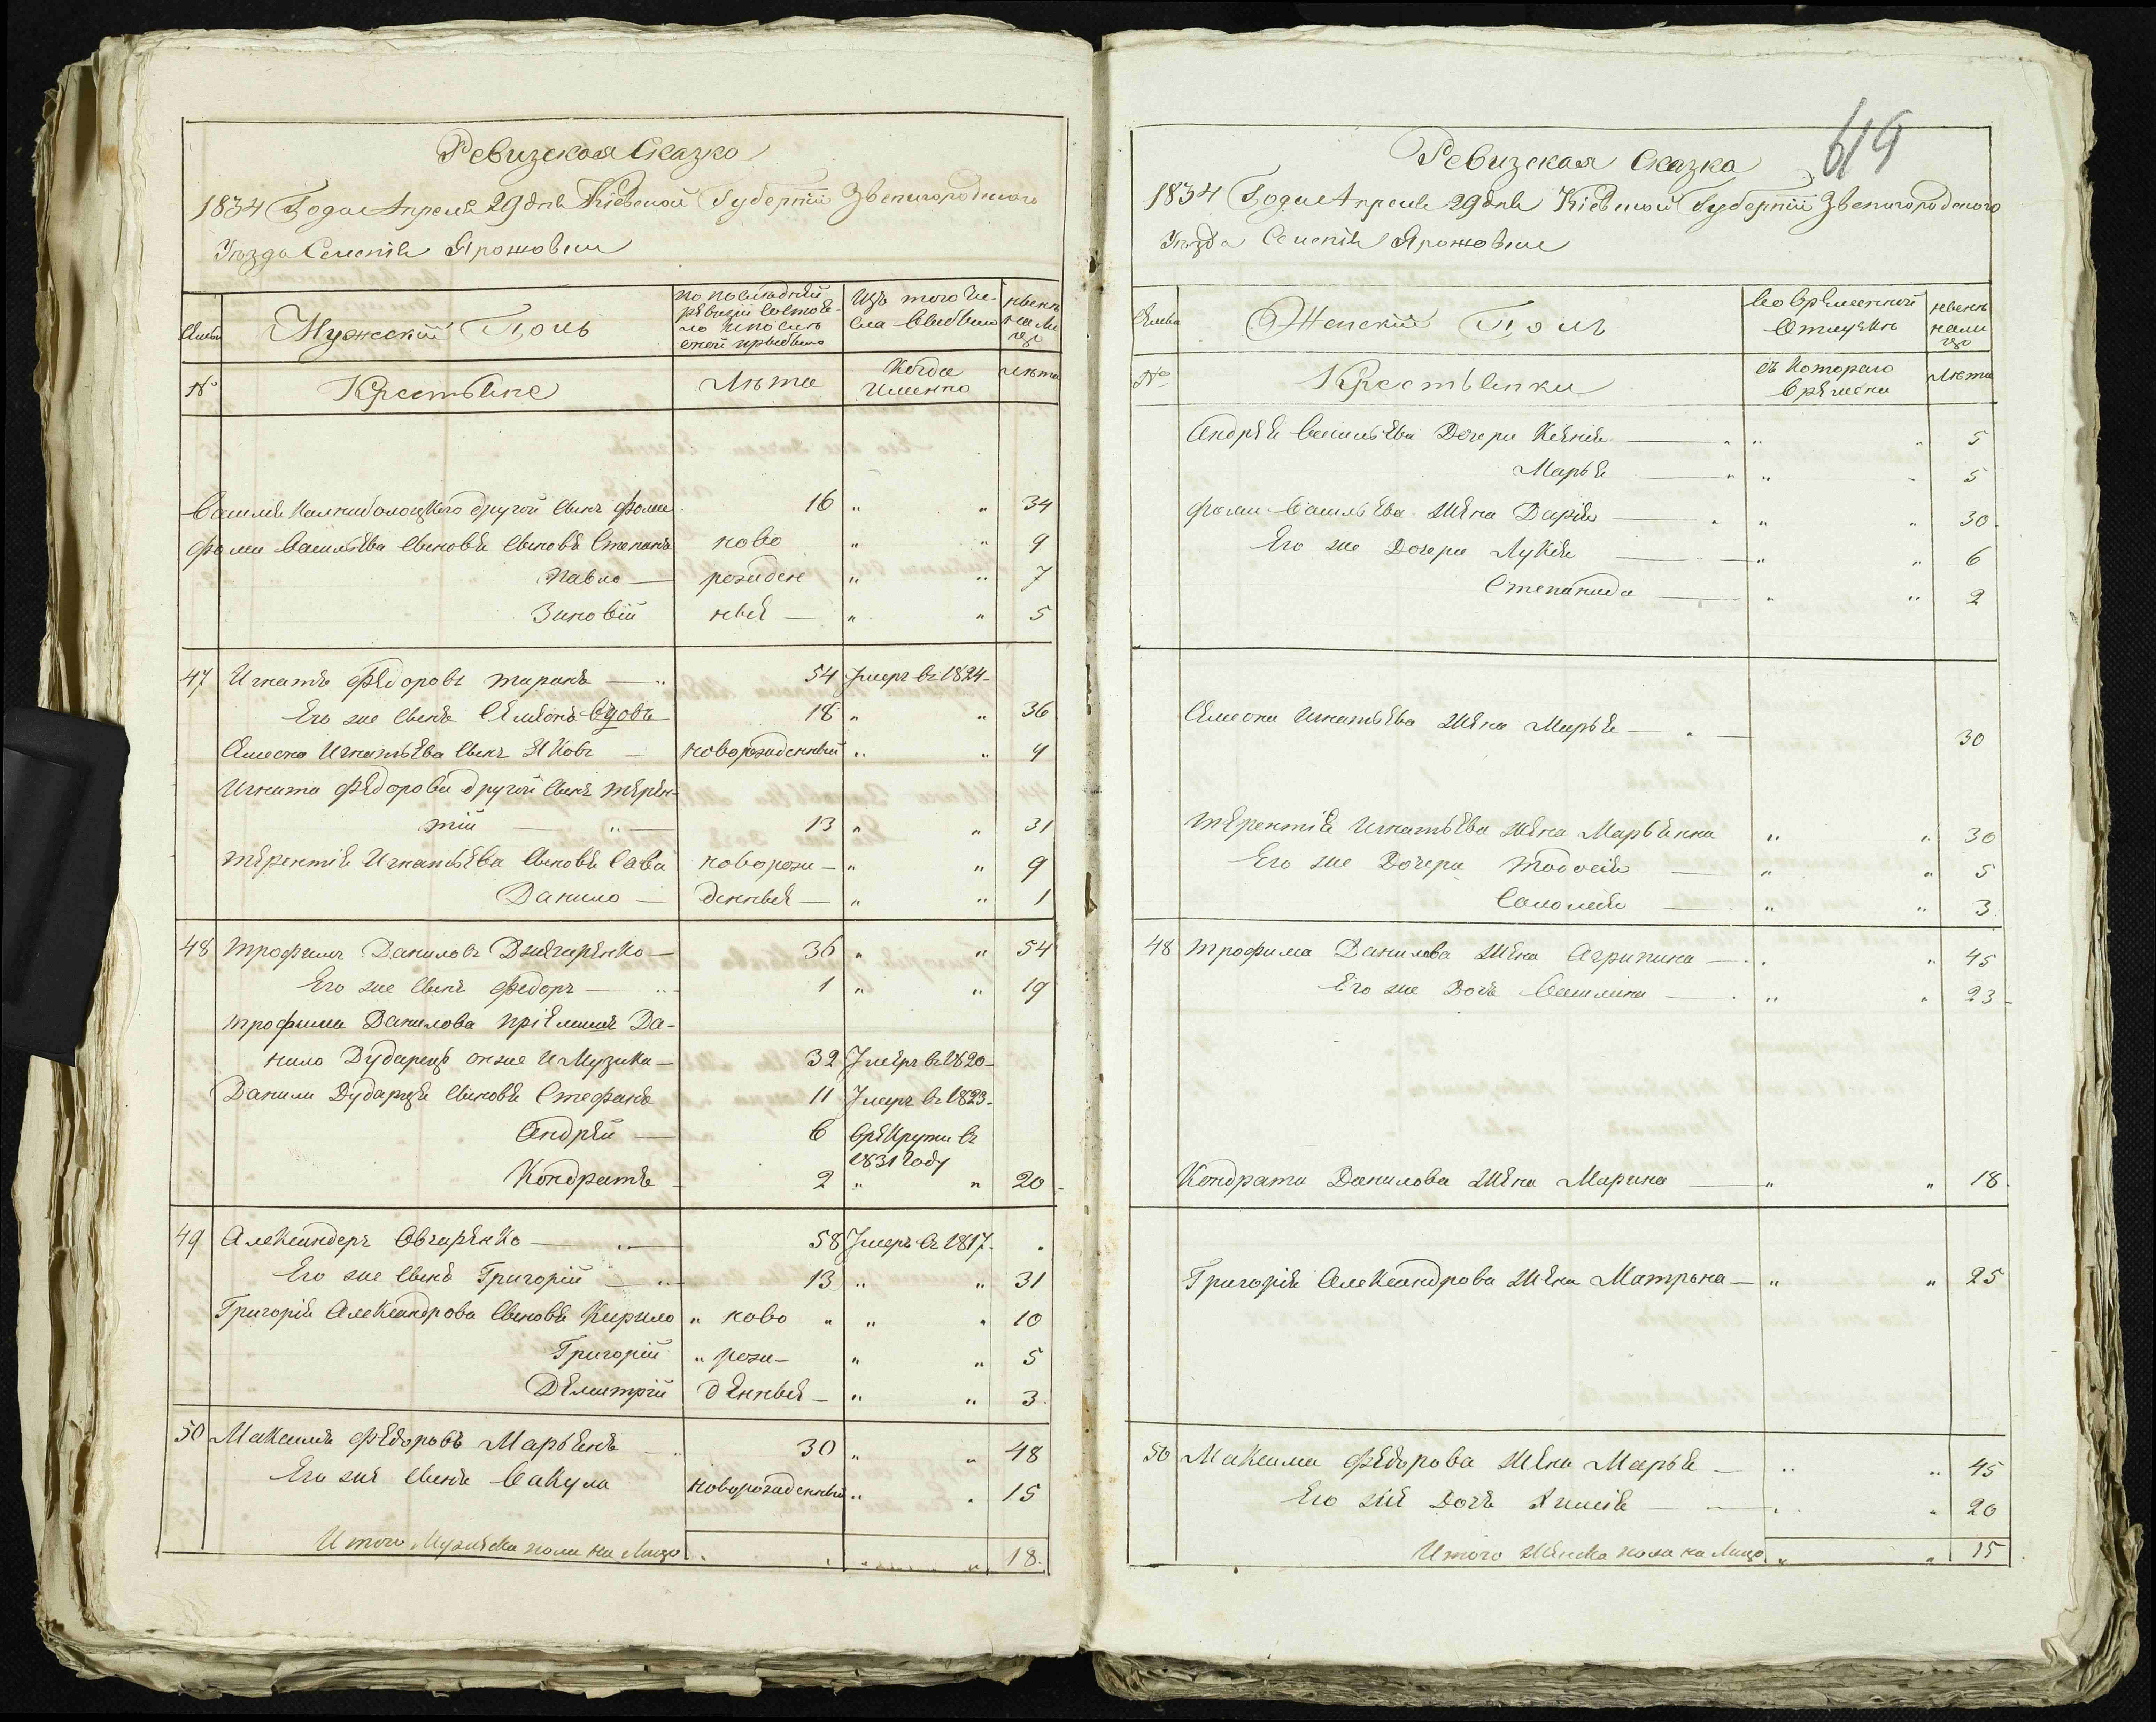 Ревизская Сказка
1834 Года Апреля 29 дня Кіевской Губерніи Звенигородского
Уезда Селенія Ярошовки
Мужескій Полъ
по последней ревизіи состояло и после оной прибыло
Изъ того числа выбыло
ныне на лицо
№
Крестьяне
Лета
Когда именно
лета
Василія Калниболоцкого другой сынъ Фома 16 " " 34
Фомы Васильева сыновья Степанъ ново " " 9
Павло — рожден " " 7
Зиновій ные — " " 5
47 Игнатъ Федоровъ — " 54 Умеръ въ 1824
Его же сынъ Семіонъ вдовъ 18 " " 36
Семена Игнатьева сынъ Яковъ — новорожденный " " 9
Игната Федорова другой сынъ Терен-
тій — " — 13 " " 31
Терентія Игнатьева сыновья Сава новорож — " " 9
Данило — денные — " " 1
48 Трофимъ Даниловъ — 36 " " 54
Его же сынъ Федоръ — 1 " " 19
Трофима Данилова пріемишъ Да-
нило Дударецъ онже и Музика — 32 Умеръ въ 1820
Данила Дударця сыновья Стефанъ 11 Умеръ въ 1823
Андрей — 6 в рекруты въ
1831 году
Кондратъ 2 " " 20
49 Александеръ Овчаренко — 58 Умеръ въ 1817
Его же сынъ Григорій — 13 " " 31
Григорія Александрова сыновья Кирило " ново " " " 10
Григорій " рож — " " 5
Демитрій денные — " " 3
50 Максимъ Федоровъ Марьянъ — 30 " " 48
Его же сынъ Вакула новорожденный " " 15
Итого мужеска пола на лицо " " 18
619
Ревизская Сказка
1834 Года Апреля 29 дня Кіевской Губерніи Звенигородского
Уезда Селенія Ярошовки
Женскій Полъ
Во временной отлучке
ныне на лицо
№
Крестьянки
съ которого времени
лета
Андрея Васильева дочери Ксенія — " " 5
Марья — " " 5
Фомы Васильева жена Дарія — " " 30
Его же дочери Лукія — " " 6
Степанида — " " 2
Семена Игнатьева жена Марья — 30
Терентія Игнатьева жена Марьянна " " 30
Его же дочери Тодосія — " " 5
Соломія — " " 3
48 Трофима Данилова жена Агрипина — " " 45
Его же дочь Василина — " " 23
Кондрата Данилова жена Марина — " " 18
Григорія Александрова жена Матрына — " " 25
50 Максима Федорова жена Марья — " " 45
Его же дочь — " " 20
Итого женска пола на лицо " " 15